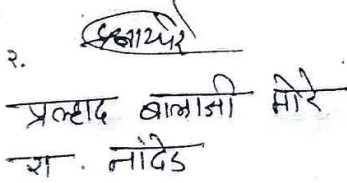 २.
प्रल्हाद बालाजी मोरे
रा. नांदेड